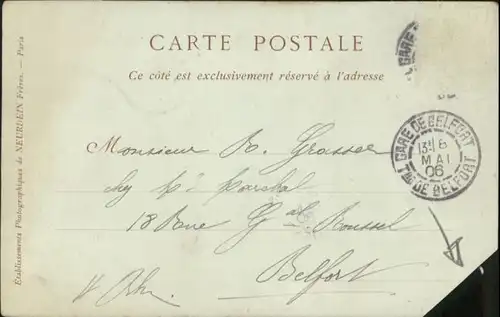 CARTE POSTALE
Ce côté est exclusivement réservé à l'adresse
Etablissements Photographiques de NEURDEIN Frères. — Paris
GARE
GARE DE BELFORT
13 8
MAI
06
DE BELFORT
Monsieur R. Grosser
chez Mr
18 Rue Gal Roussel
Belfort